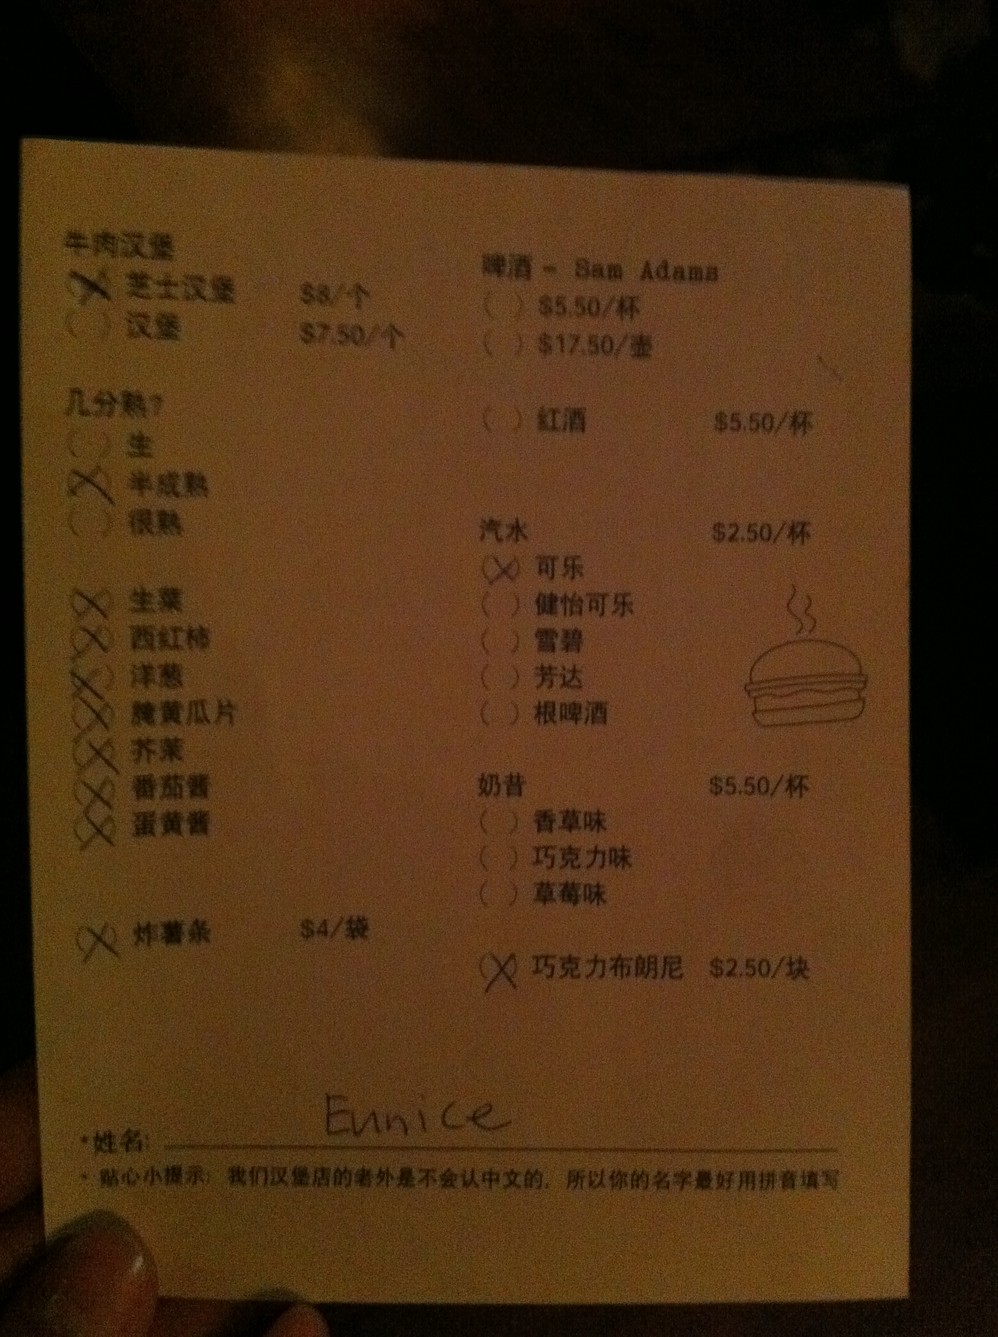 牛肉汉堡
(X) 芝士汉堡 $8/个
( ) 汉堡 $7.50/个
几分熟?
( ) 生
(X) 半成熟
( ) 很熟
(X) 生菜
(X) 西紅柿
(X) 洋葱
(X) 腌黄瓜片
(X) 芥茉
(X) 番茄酱
(X) 蛋黄酱
(X) 炸薯条 $4/袋
啤酒 - Sam Adams
( ) $5.50/杯
( ) $17.50/壶
( ) 紅酒 $5.50/杯
汽水 $2.50/杯
(X) 可乐
( ) 健怡可乐
( ) 雪碧
( ) 芳达
( ) 根啤酒
奶昔 $5.50/杯
( ) 香草味
( ) 巧克力味
( ) 草莓味
(X) 巧克力布朗尼 $2.50/块
*姓名: Eunice
* 贴心小提示: 我们汉堡店的老外是不会认中文的, 所以你的名字最好用拼音填写